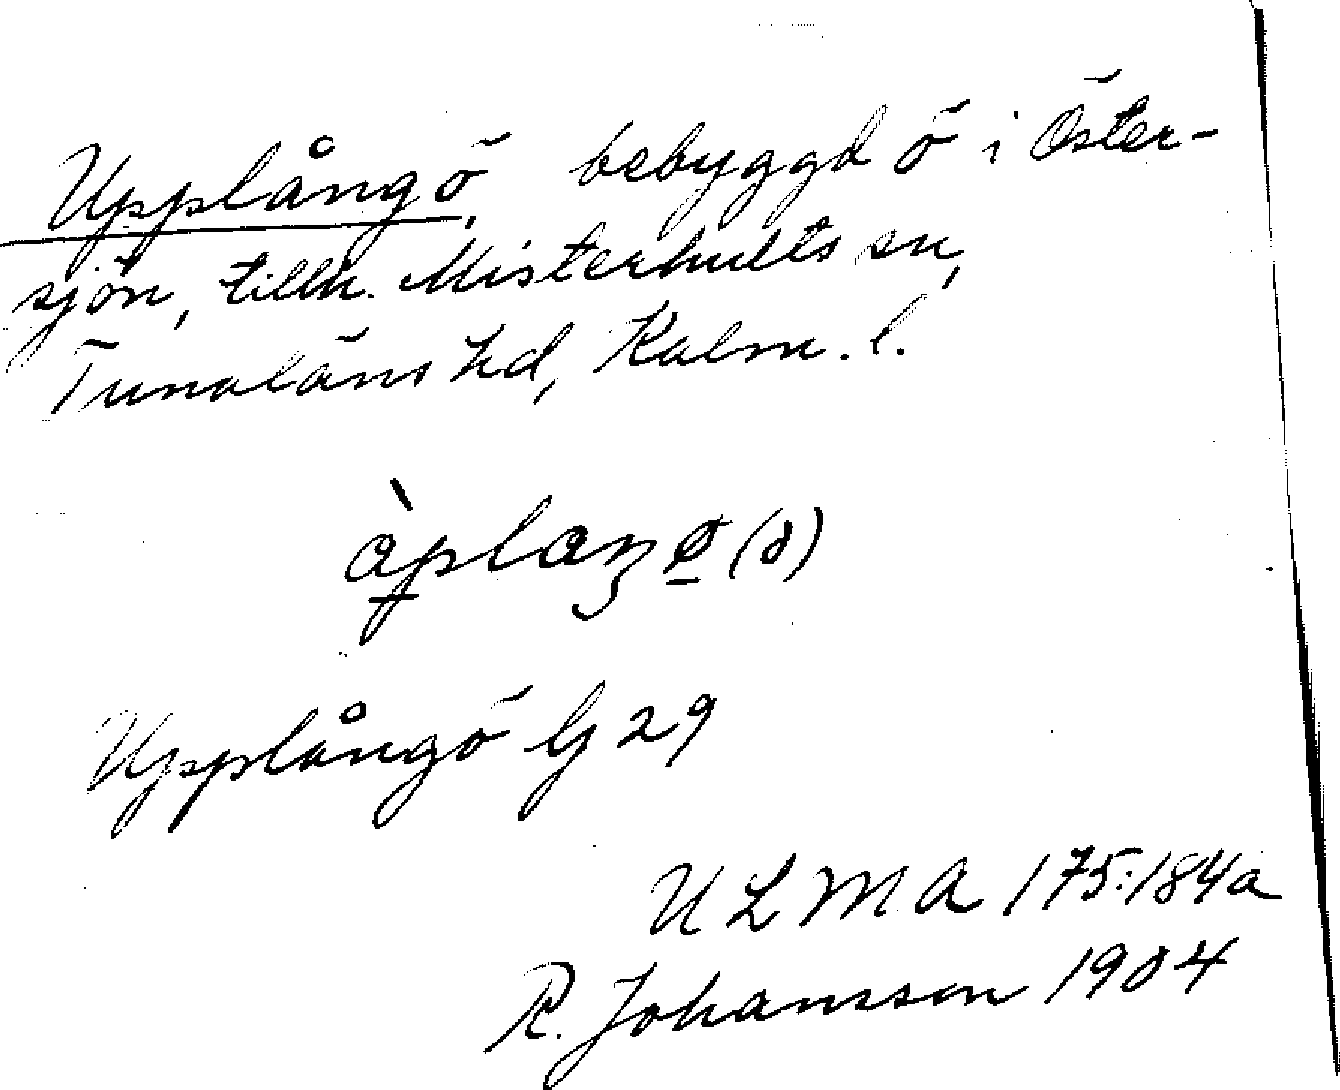 Upplångö, bebyggd ö i Öster-
sjön, tillh. Misterhults sn,
Tunaläns hd, Kalm. l.
Upplångö G 29
ULMA 175:184a
R. Johansson 1904